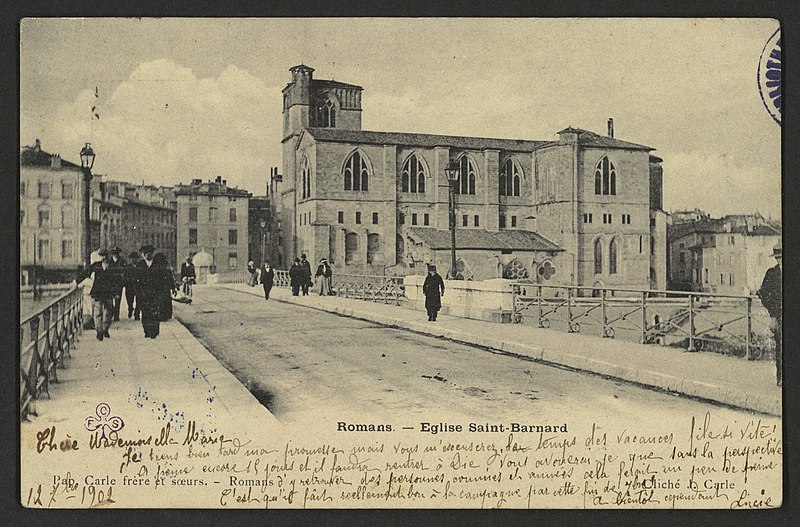 Romans. — Eglise Saint-Barnard
C
F S
Chère Mademoiselle Marie
Je tiens bien tard ma promesse mais vous m'excuserez, le temps des vacances file si vite!
A peine encore 15 jours et il faudra rentrer à Die. Vous avouerez-je que sans la perspective
Pap. Carle frère et sœurs. - Romans
d'y retrouver des personnes connues et aimées cela serait un peu de peine
Cliché J. Carle
12 7bre 1902
C'est qu'il fait réellement bon à la campagne par cette fin de
A bientôt cependant
Lucie